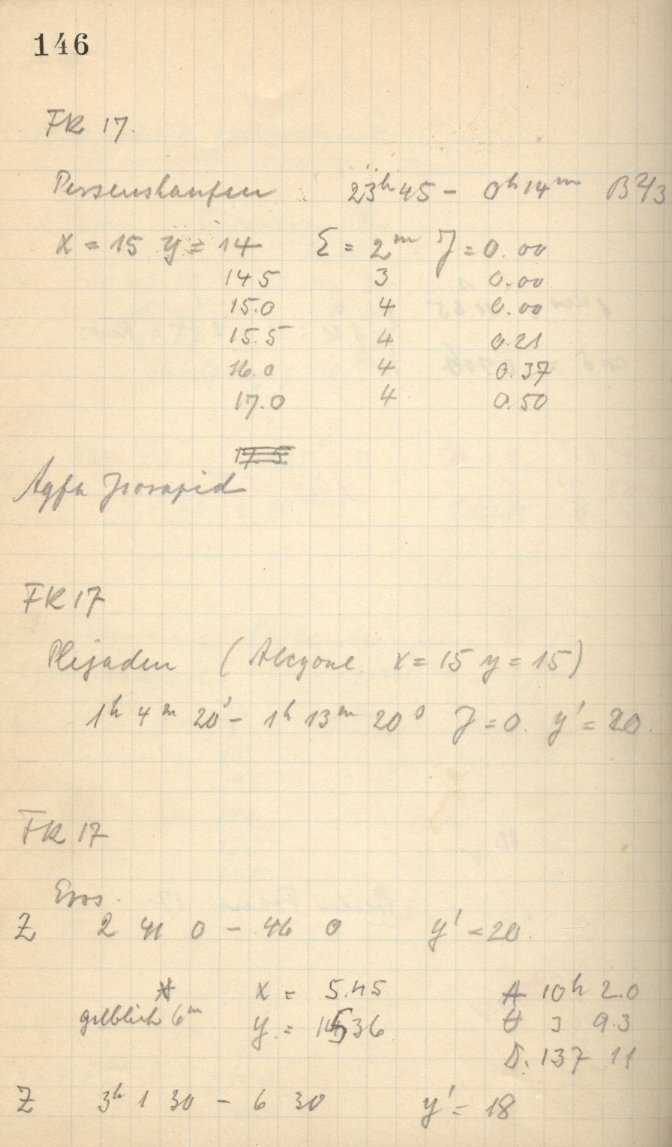 146
FK 17.
Perseushaufen 23h 45 - 0h 14m B 2/3
x = 15 y = 14 Σ = 2m J = 0.00
14.5 3 0.00
15.0 4 0.00
15.5 4 0.21
16.0 4 0.37
17.0 4 0.50
17.5
Agfa Isorapid
FK 17
Plejaden (Alcyone x = 15 y = 15)
1h 4m 20s - 1h 13m 20s J = 0. y' = 20.
FK 17
Eros.
Z 2 41 0 - 46 0 y' = 20.
* x = 5.45 A 10h 2.0
gelblich 6m y = 1536 3 93
D. 137 11
Z 3h 1 30 - 6 30 y' = 18